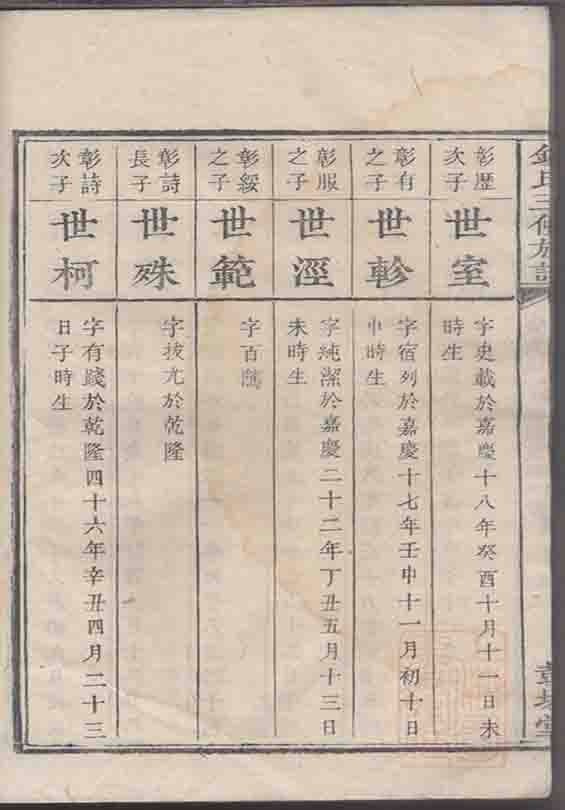 氏三修族譜
彰歷
次子
世室
字史載於嘉慶十八年癸酉十月十一日未
時生
彰有
之子
世軫
字宿列於嘉慶十七年壬申十一月初十日
申時生
彰服
之子
世涇
字純潔於嘉慶二十二年丁丑五月十三日
未時生
彰綏
之子
世範
字百
彰詩
長子
世殊
字拔尤於乾隆
彰詩
次子
世柯
字有踐於乾隆四十六年辛丑四月二十三
日子時生